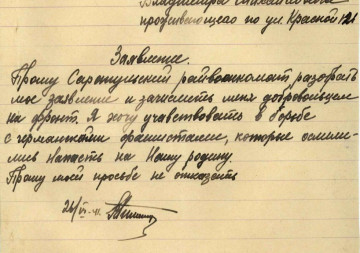 Владимира Михайловича
проживающего по ул Красной 121
Заявление.
Прошу Сарапульский райвоенкомат разобрать
мое заявление и зачислить меня добровольцем
на фронт. Я хочу учавствовать в борьбе
с германскими фашистами, которые осмели-
лись напасть на Нашу родину.
Прошу моей просьбе не отказать
26/VI-41.